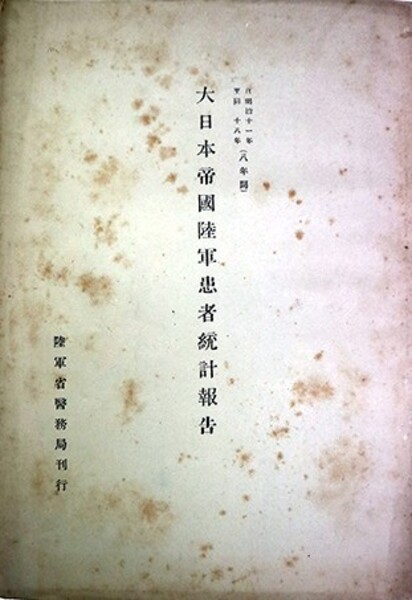 自明治十一年
至同 十八年
(八年間)
大日本帝國陸軍患者統計報告
陸軍省醫務局刊行